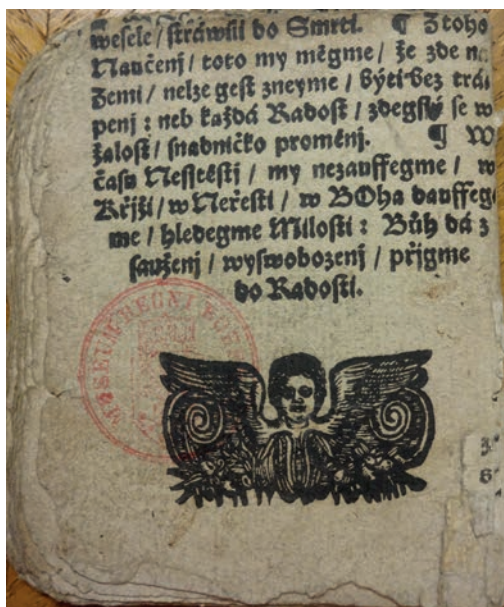 wesele / ſtráwili do Smrti. ¶ Z toho
Naučenj / toto my měgme / že zde na
Zemi / nelze geſt zneyme / býti bez trá
penj : neb každá Radoſt / zdegſſý ſe w
žaloſt / ſnadničko proměnj. ¶ W
čaſu Neſſtěſtj / my nezauffegme / w
Křjži / w Neřeſti / w BOha dauffeg
me / hledegme Miloſti : Bůh dá z
ſauženj / wyſwobozenj / přigme
do Radoſti.
MUSEUM REGNI BOH